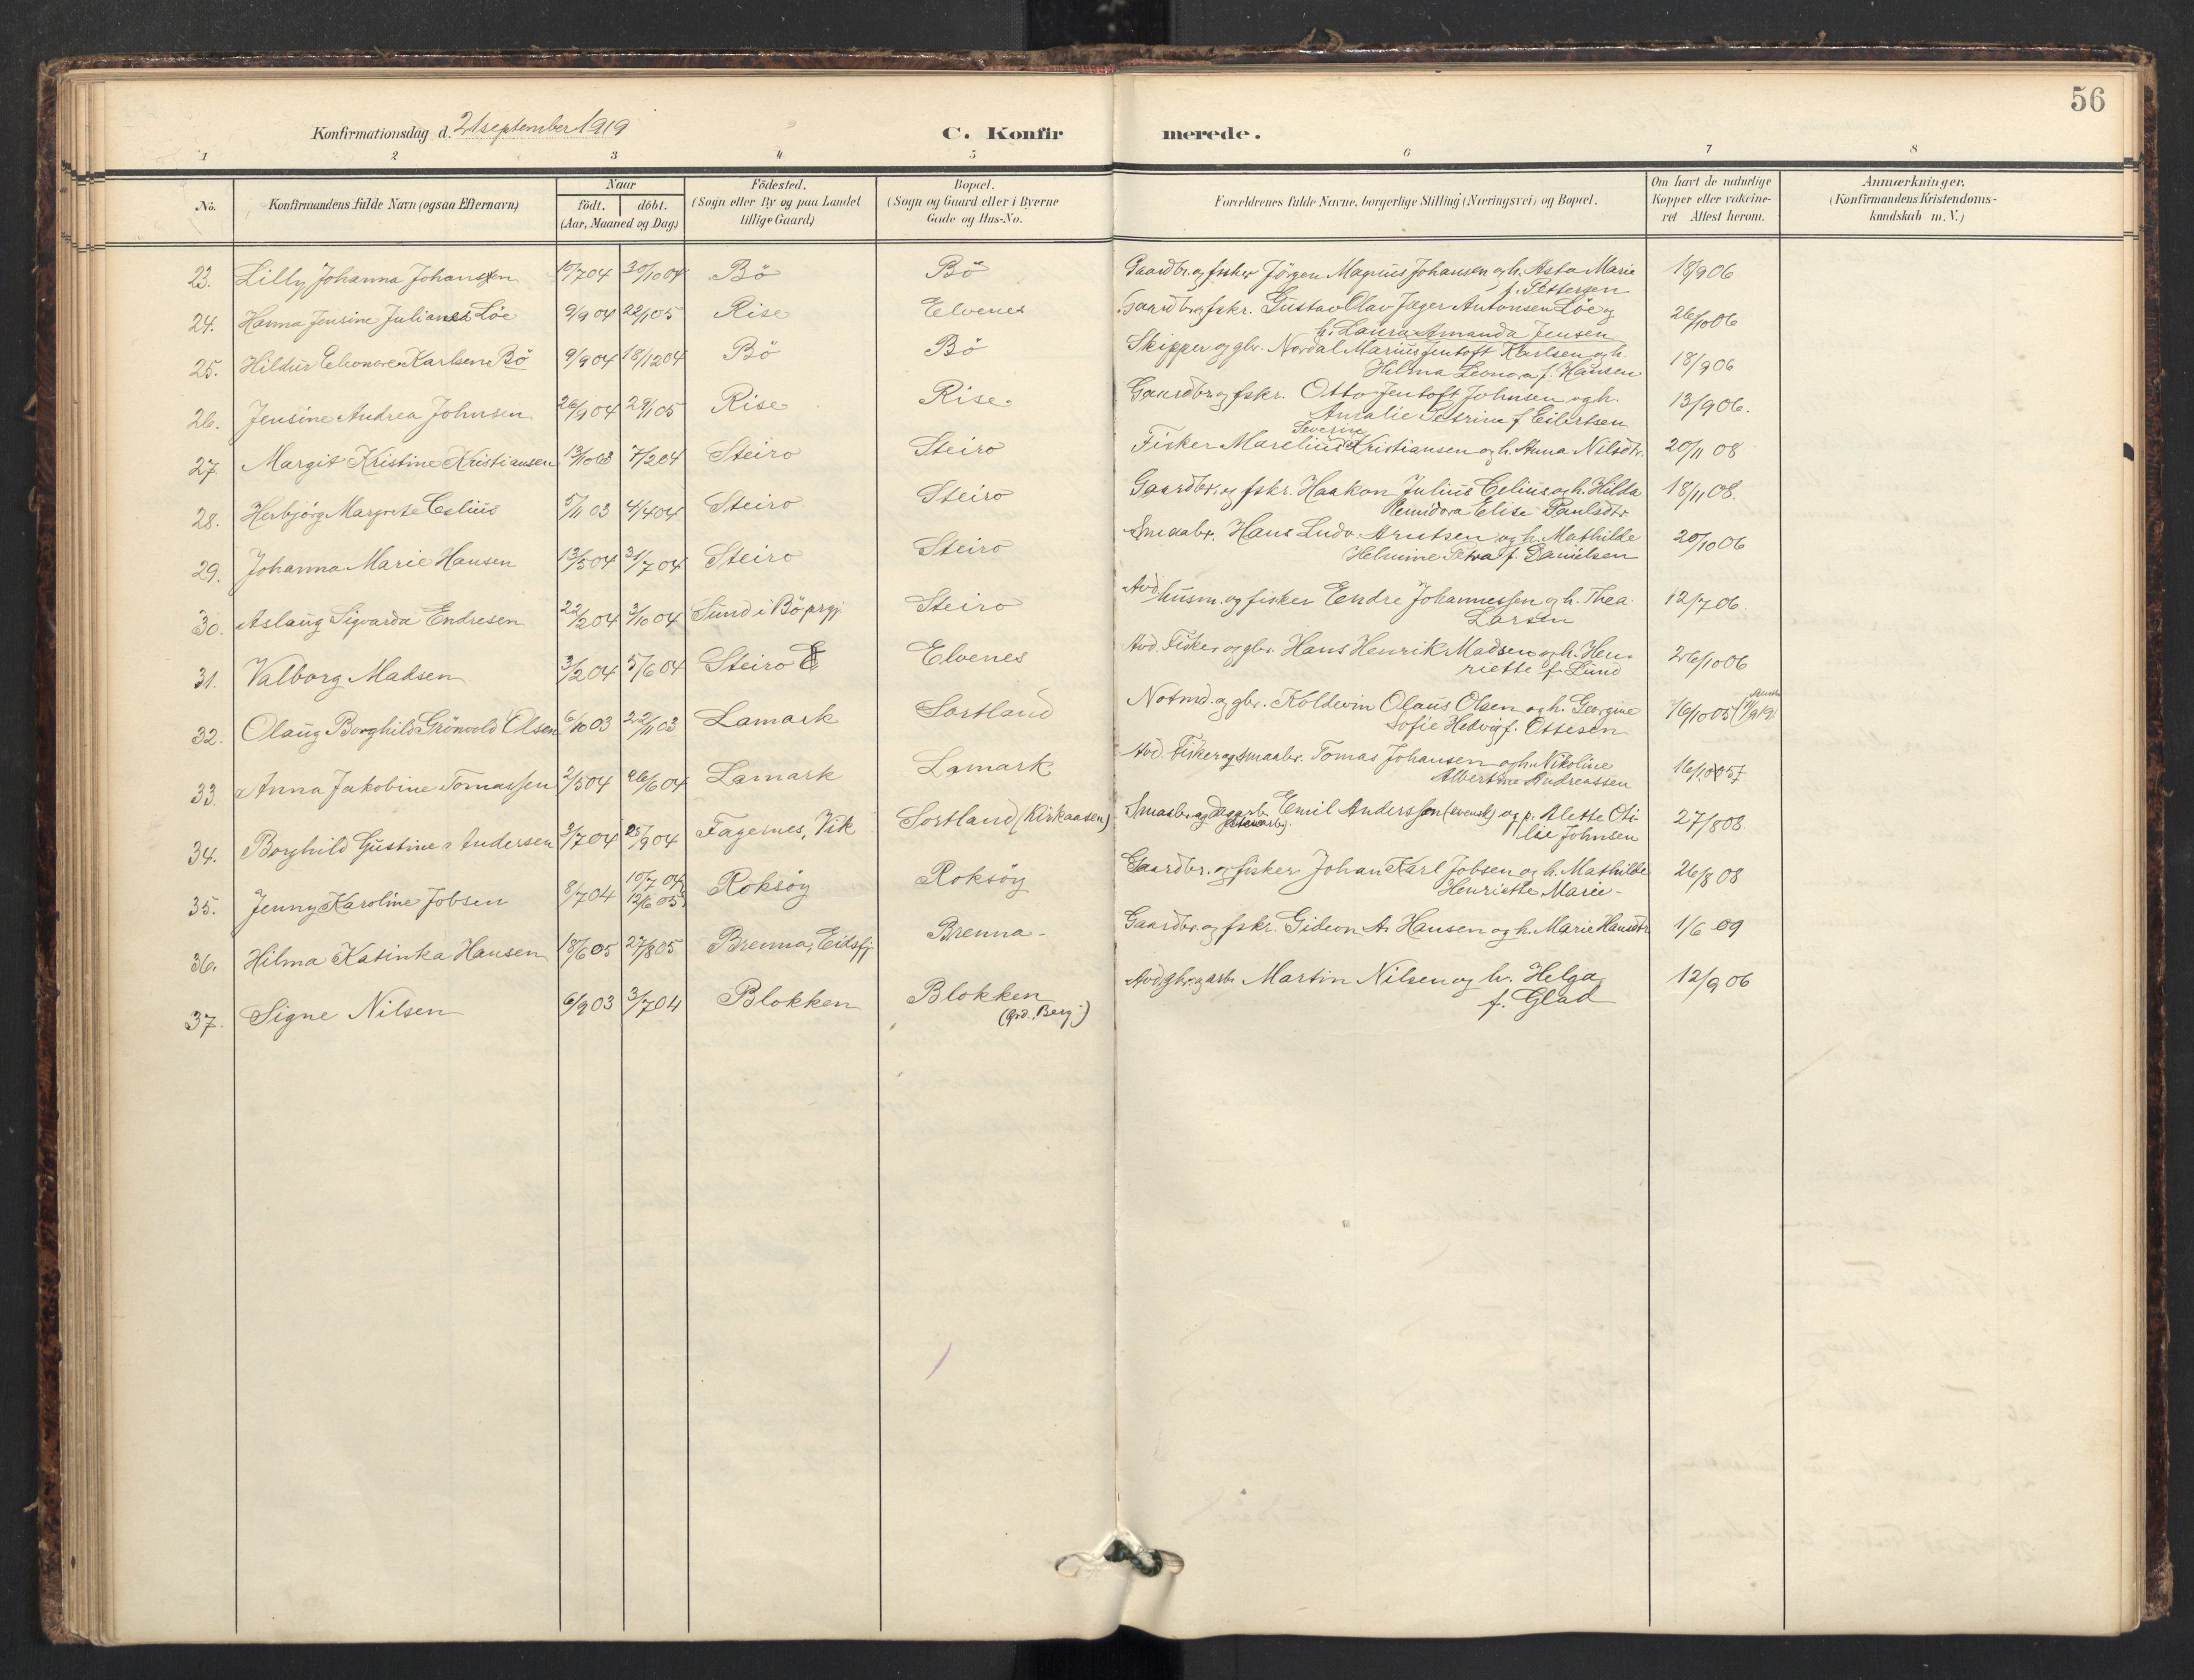 56
Konfirmationsdag d. 21 september 1919
C. Konfirmerede.
1 2 3 4 5 6 7 8
No.
Konfirmandens fulde Navn (ogsaa Efternavn)
Naar
født. døbt.
(Aar, Maaned og Dag)
Fødested.
(Sogn eller By og paa Landet
tillige Gaard)
Bopæl.
(Sogn og Gaard eller i Byerne
Gade og Hus-No.
Forældrenes fulde Navne, borgerlige Stilling (Næringsvei) og Bopæl.
Om havt de naturlige
Kopper eller vakcine-
ret Attest herom.
Anmærkninger.
(Konfirmandens Kristendoms-
kundskab m. V.)
23. Lilly Johanna Johansen 30/10 04 Bö Bö Gaardbr. og fisker Jörgen Magnus Johansen og h. Asta Marie 18/9 06
f. Pettersen
24. Hanna Jensine Löe 9/9 04 22/1 05 Rise Elvenes Gaardbr. og fskr. Gustav Olav Jæger Antonsen Löe og 26/10 06
h. Laura Amanda Jensen
25. Hildur Eleonore Karlsen Bö 9/9 04 18/12 04 Bö Bö Skipper og gbr. Nordal Marius Jentoft Karlsen og h. 18/9 06
Hilma Leonora f. Hansen
26. Jensine Andrea Johnsen 26/9 04 29/1 05 Rise Rise Gaardbr og fskr. Otto Jentoft Johnsen og h. 13/9 06.
Amalie Petrine f Eilertsen
27. Margit Kristine Kristiansen 13/10 03 7/2 04 Steiro Steiro Fisker Marelius Severin Kristiansen og h. Anna Nilsdtr. 20/11 08
28. Herbjörg Margrete Celius 5/11 03 4/4 04 Steiro Steiro Gaardbr. og fskr. Haakon Julius Celius og h. Hilda 18/11 08.
Elise Paulsdtr.
29. Johanna Marie Hansen 13/5 04 31/7 04 Steiro Steiro Smaabr. Hans Ludv. Arntsen og h. Mathilde 20/10 06
Helmine Petra f. Danielsen
30. Aslaug Sigvarda Endresen 22/2 04 3/10 04 Sund i Bö prgj. Steiro Avd. husm. og fisker Endre Johannessen og h. Thea 12/7 06.
Larsen
31. Valborg Madsen 3/2 04 5/6 04 Steiro Elvenes Avd. Fisker og gbr. Hans Henrik Madsen og h. Hen- 26/10 06
riette f. Lund
32. Olaug Borghild Grönvold Olsen 6/10 03 22/11 03 Lamark Sortland Notmd. og gbr. Koldevin Olaus Olsen og h. Georgine 16/10 05
Sofie Hedvig f. Ottesen
33. Anna Jakobine Tomassen 2/5 04 26/6 04 Lamark Lamark Avd. Fisker og smaabr. Tomas Johansen og h. Nikoline
Albertine Andreassen
34. Borghild Gustine Andersen 3/7 04 25/9 04 Fagernes, Vik Sortland (Kirkaasen) Smaabr. og Emil Anderssen (svensk) og p. Alette Oti- 27/8 08
lie Johnsen
35. Jenny Karoline Jobsen 8/7 04 10/7 04 Roksöy Roksöy Gaardbr. og fisker Johan Karl Jobsen og h. Mathilde 26/8 08
12/6 05 Henriette Marie-
36. Hilma Katinka Hansen 18/6 05 27/8 05 Brenna, Eidsfj Brenna- Gaardbr. og fskr. Gideon A. Hansen og h. Marie Hansdtr 1/6 09
37. Signe Nilsen 6/9 03 3/7 04 Blokken Blokken Avd. gbr. og arb. Martin Nilsen og h. Helga 12/9 06
(Grd. Berg) f. Glad